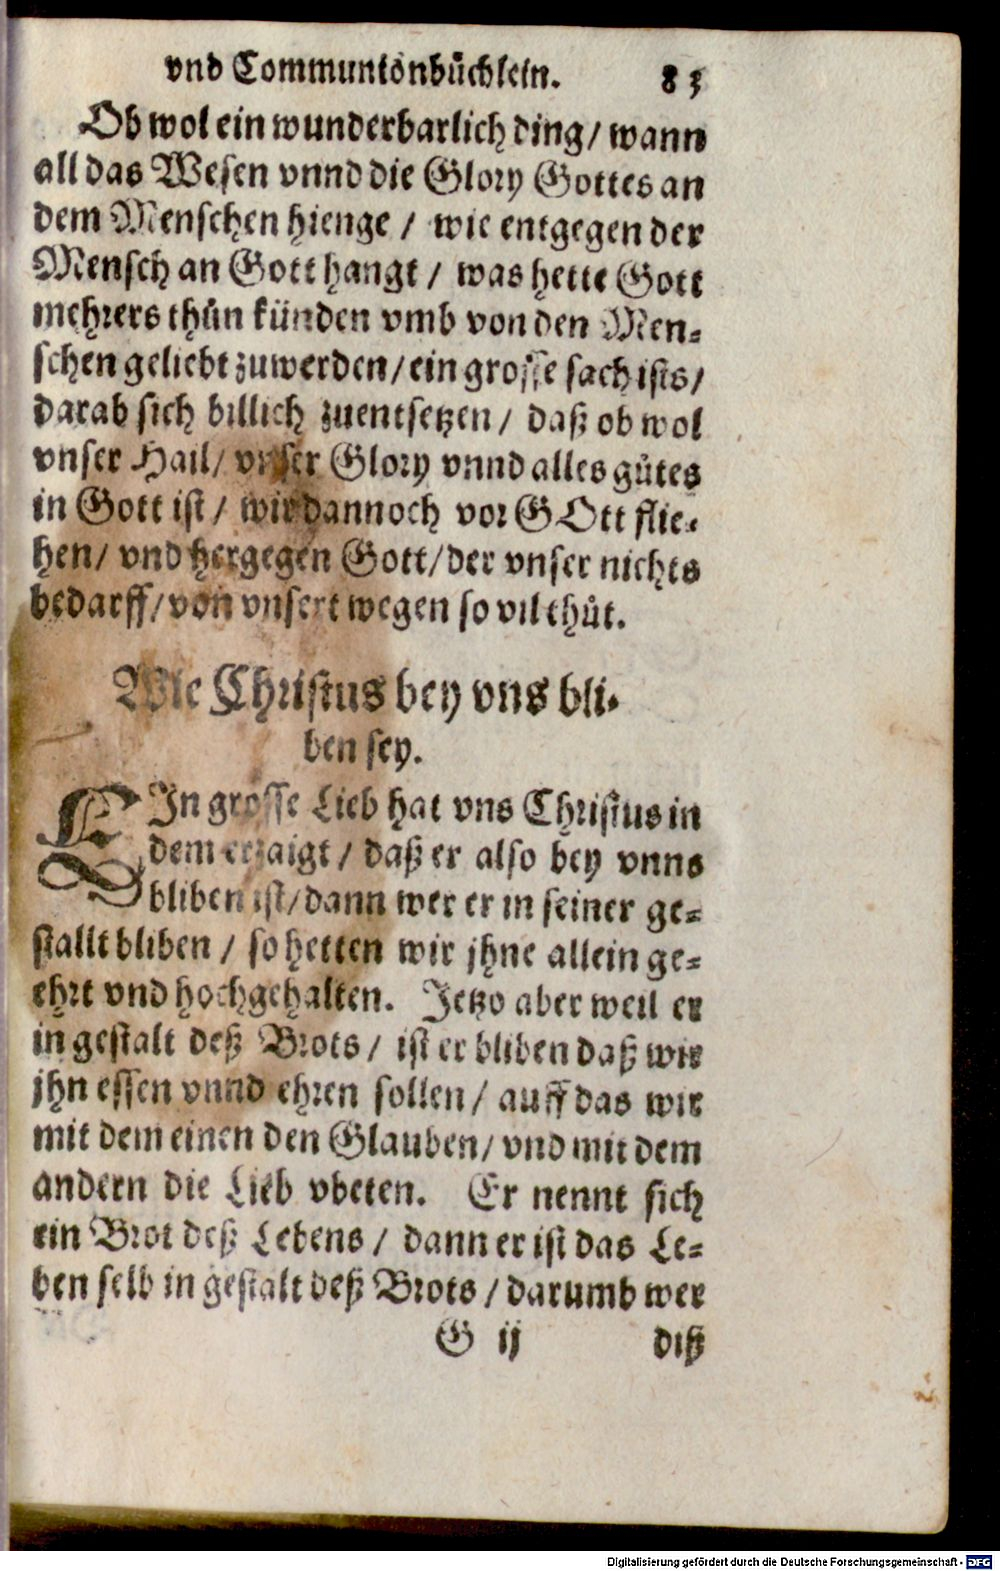 vnd Communionbüchlein. 83
Ob wol ein wunderbarlich ding/ wann
all das Wesen vnnd die Glory Gottes an
dem Menschen hienge / wie entgegen der
Mensch an Gott hangt / was hette Gott
mehrers thůn künden vmb von den Men-
schen geliebt zuwerden/ ein grosse sach ists/
darab sich billich zuentsetzen/ daß ob wol
vnser Hail/ vnser Glory vnnd alles gůtes
in Gott ist / wir dannoch vor GOtt flie-
hen/ vnd hergegen Gott/ der vnser nichts
bedarff/ von vnsert wegen so vil thůt.
Wie Christus bey vns bli-
ben sey.
EIn grosse Lieb hat vns Christus in
dem erzaigt / daß er also bey vnns
bliben ist/ dann wer er in seiner ge-
stallt bliben / so hetten wir jhne allein ge-
ehrt vnd hochgehalten. Jetzo aber weil er
in gestalt deß Brots/ ist er bliben daß wir
jhn essen vnnd ehren sollen/ auff das wir
mit dem einen den Glauben/ vnd mit dem
andern die Lieb vbeten. Er nennt sich
ein Brot deß Lebens / dann er ist das Le-
ben selb in gestalt deß Brots / darumb wer
G ij diß
Digitalisierung gefördert durch die Deutsche Forschungsgemeinschaft - DFG